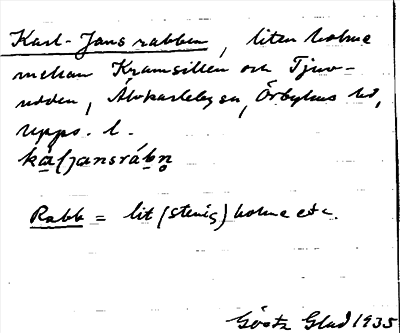 Karl-Jans rabben, liten holme
mellan Kramsillen och Tjuv-
udden, Älvkarleby sn, Örbyhus hd,
Upps. l.
Rabb = lit (stenig) holme etc.
Gösta Glad 1935